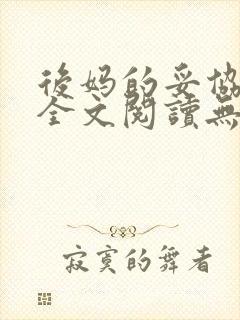 後妈的妥協
全文閱讀無
寂寞的舞者